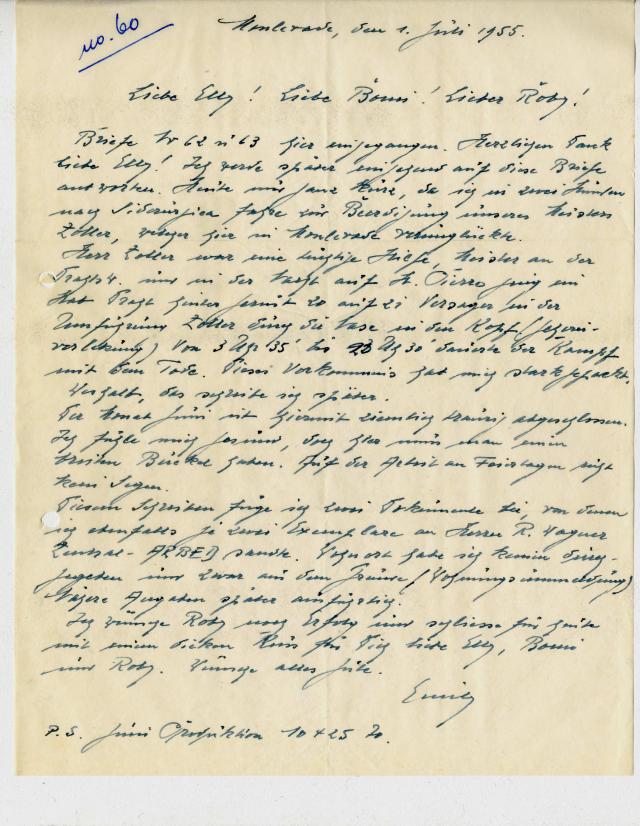 no. 60
Monlevade, den 1. Juli 1955.
Liebe Elly! Liebe Bomi! Lieber Roby!
Briefe Nr 62 u 63 hier eingegangen. Herzlichen Dank
liebe Elly! Ich werde später eingehend auf diese Briefe
antworten. Heute nur ganz kurz, da ich in zwei Stunden
nach Siderurgica fahre zur Beerdigung unseres Meisters
Zoller, welcher hier in Monlevade verunglückte.
Herr Zoller war eine tüchtige Hilfe, Meister an der
und in der Nacht auf St. Pierre ging ein
hinter Gerüst 20 auf 21 Versager in der
Umführung Zoller durch die Nase in den Kopf (Gehirn-
verletzung) Von 3 Uhr 35' bis 20 Uhr 30' dauerte der Kampf
mit dem Tode. Dieses Vorkommnis hat mich stark gepackt.
Weshalb, das schreibe ich später.
Der Monat Juni ist hiermit ziemlich traurig abgeschlossen.
Ich fühle mich gesund, doch hier muss man einen
breiten Buckel haben. Auf der Arbeit an Feiertagen ruht
kein Segen.
Diesem Schreiben füge ich zwei bei, von denen
ich ebenfalls je zwei Exemplare an Herrn R. Wagner
Zentral-ARBED sandte. Wohnort habe ich keinen
gegeben und zwar aus dem Grunde (Wohnungsummeldung)
Nähere Angaben später ausführlich.
Ich wünsche Roby noch Erfolg und schliesse für heute
mit einem dicken Kuss für Dich liebe Elly, Bomi
und Roby. Wünsche alles Gute.
Emil
P.S. Juni Produktion 10425 To.